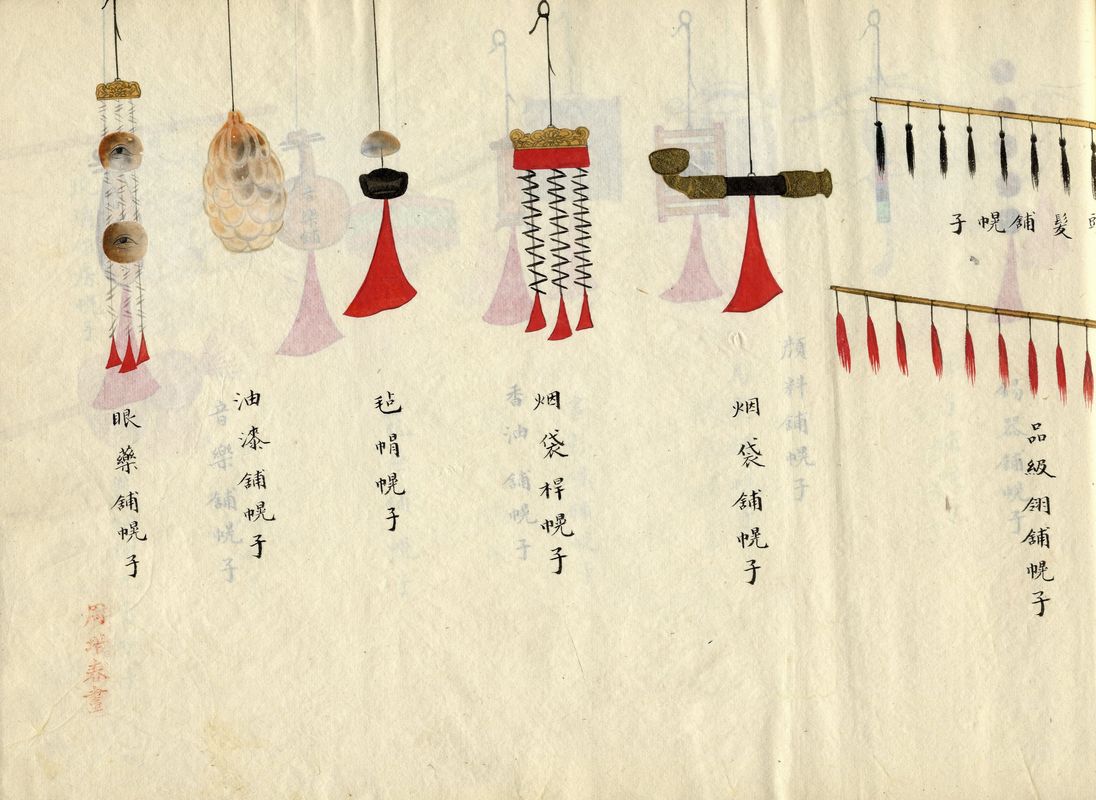 髮舖幌子
品級翎舖幌子
烟袋舖幌子
烟袋桿幌子
毡帽幌子
油漆舖幌子
眼藥舖幌子
周培春畫